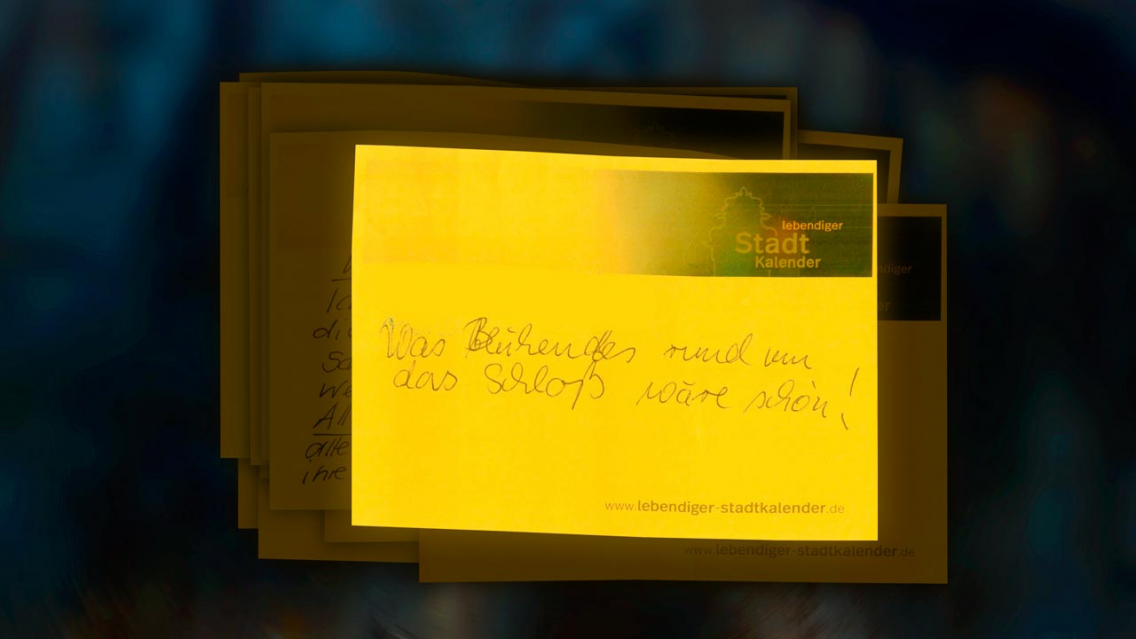 lebendiger
Stadt
Kalender
Was Blühendes rund um
das Schloß wäre schön!
www.lebendiger-stadtkalender.de
diger
di
Sc
We
All
alte
ihre
www.lebendiger-stadtkalender.de